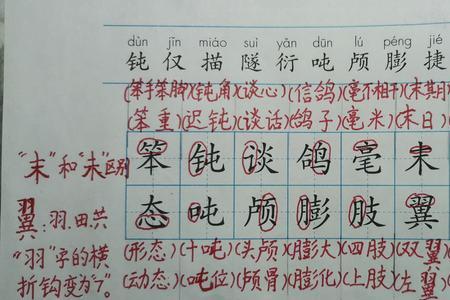 dùn jǐn miáo suì yǎn dūn lú péng jié
钝 仅 描 隧 衍 吨 颅 膨 捷
(笨手笨脚)(钝角)(谈心)(信鸽)(毫不相干)(末期)
(笨重)(迟钝)(谈话)(鸽子)(毫米)(末日)
"末"和"未"区别 笨 钝 谈 鸽 毫 末
翼:羽.田.共 态 吨 颅 膨 肢 翼
"羽"字的横 (形态)(十吨)(头颅)(膨大)(四肢)(双翼
折钩变为"㇆"。 (动态)(吨位)(颅骨)(膨化)(上肢)(左翼